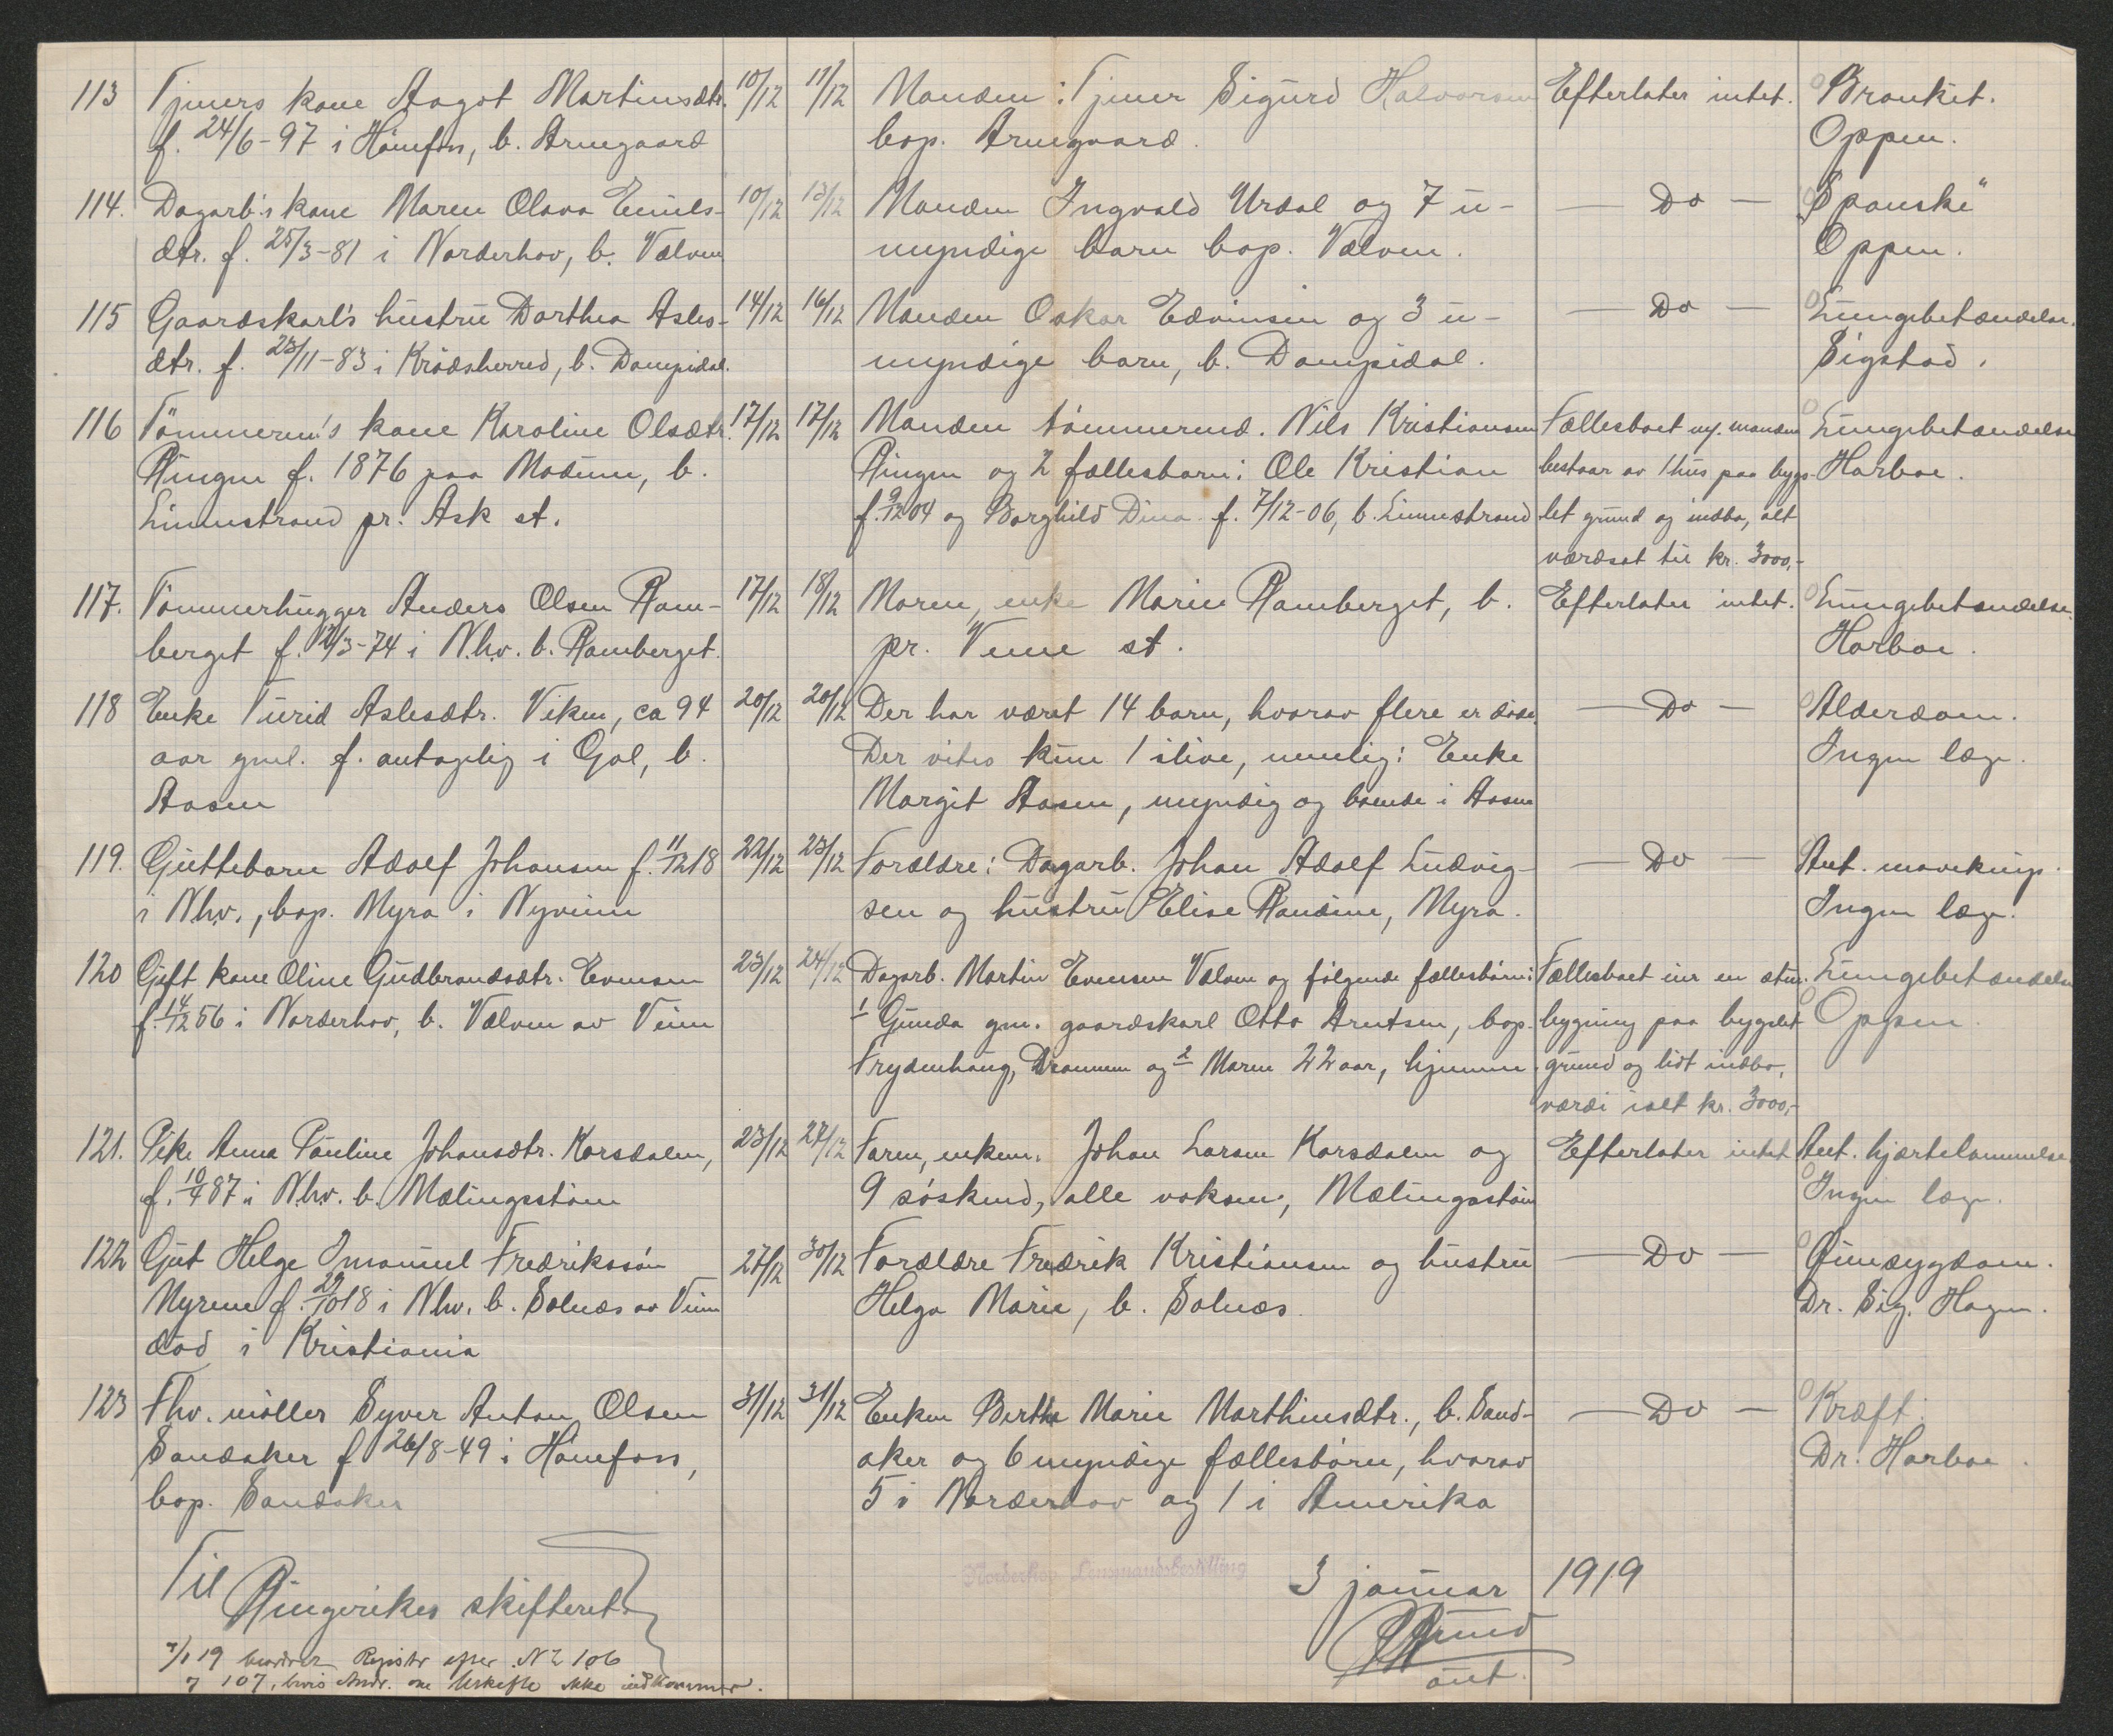 113 Tjeners kone Aagot Martinsdtr. 10/12 11/12 Manden: Tjener Sigurd Halvorsen Efterlater intet. Bronkit.
f. 24/6-97 i Hönefos, b. Arnegaard bop. Arnegaard. Oppen.
114. Dagarb's kone Maren Olava Emils- 10/12 13/12 Manden Ingvald Urdal og 7 u- — Do — "Spanske"
dtr. f. 25/3-81 i Norderhov, b. Vælven myndige barn bop. Vælven. Oppen.
115 Gaardskarl's hustru Dorthea Asles- 14/12 16/12 Manden Oskar Edvinsen og 3 u- — Do — Lungebetændelse.
dtr. f. 23/11-83 i Krödsherred, b. Dampidal. myndige barn, b. Dampidal. Sigstad.
116 Tömmerm's kone Karoline Olsdtr. 17/12 17/12 Manden tömmermd. Nils Kristiansen Fællesboet m. manden Lungebetændelse
Ringen f. 1876 paa Modum, b. Ringen og 2 fællesbarn: Ole Kristian bestaar av 1 hus paa bygs- Harboe.
Linnestrand pr. Ask st. f. 9/12 04 og Borghild Dina f. 7/12-06, b. Linnestrand let grund og indbo, alt
værdsat til kr. 3000,-
117. Tömmerhugger Anders Olsen Ram- 17/12 18/12 Moren, enke Marie Ramberget, b. Efterlater intet. Lungebetændelse.
berget f. 12/3-74 i N.hv. b. Ramberget. pr. Veme st. Harboe.
118 Enke Turid Aslesdtr. Viken, ca 94 20/12 20/12 Der har været 14 barn, hvorav flere er döde. — Do — Alderdom.
aar gml. f. antagelig i Gol, b. Der vites kun 1 ilive, nemlig: Enke Ingen læge.
Aasen Margit Aasen, myndig og boende i Aasen
119. Guttebarn Adolf Johansen f. 11/12 18 22/12 23/12 Forældre: Dagarb. Johan Adolf Ludvig- — Do — Ant. mavekni­p.
i Nhv., bop. Myra i Nyveien sen og hustru Elise Randine, Myra. Ingen læge.
120 Gift kone Oline Gudbrandsdtr. Evensen 23/12 24/12 Dagarb. Martin Evensen Vælven og følgende fællesbörn: Fællesboet eier en Lungebetændelse
f. 14/12 56 i Norderhov, b. Vælven av Veien 1 Gunda gm. gaardskarl Otto Arntsen, bop. bygning paa bygslet Oppen.
Frydenhaug, Drammen og 2 Maren 22 aar, hjemme grund og lidt indbo,
værdi ialt kr. 3000,-
121. Pike Anna Pauline Johansdtr. Korsdalen, 23/12 27/12 Faren, enkem. Johan Larsen Korsdalen og Efterlater intet Ant. hjertelammelse.
f. 10/4 87 i Nhv. b. Mælingsstöen 9 söskend, alle voksne, Mælingsstöen Ingen læge.
122 Gut Helge Imanuel Fredrikssön 27/12 30/12 Forældre Fredrik Kristiansen og hustru — Do —
Myrene f. 29/10 18 i Nhv. b. Solnæs av Veien Helga Marie, b. Solnæs. Dr. Sig. Hagen.
död i Kristiania
123 Fhv. möller Syver Anton Olsen 31/12 31/12 Enken Berthe Marie Marthinsdtr., b. Sand- — Do — Kræft.
Sandaker f 26/8-49 i Hönefoss, aker og 6 myndige fællesbörn, hvorav Dr. Harboe.
bop. Sandaker 5 i Norderhov og 1 i Amerika
Til
Ringerikes skifteret
Norderhov Lensmandsbestilling
3 januar 1919
7/1 19 Registr efter No 106
107, hvis ikke indkommer.